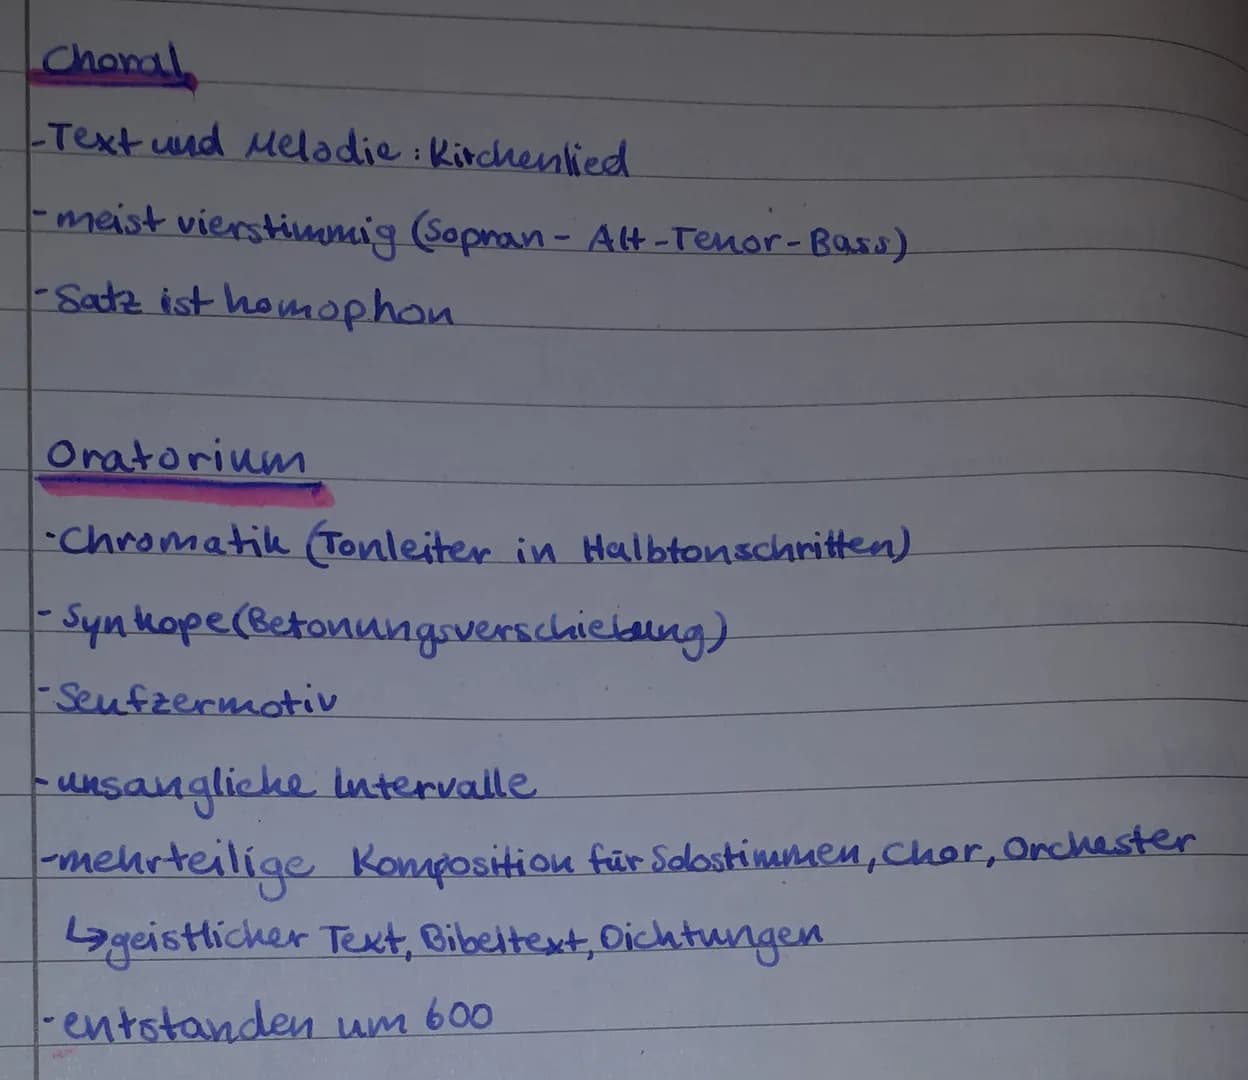 Choral
-Text und Melodie: Kirchenlied
-meist vierstimmig (Sopran - Alt-Tenor-Bass)
-Satz ist homophon
Oratorium
-Chromatik (Tonleiter in Halbtonschritten)
-Synkope (Betonungsverschiebung)
-Seufzermotiv
-unsangliche Intervalle
-mehrteilige Komposition für Solostimmen, Chor, Orchester
↳geistlicher Text, Bibeltext, Dichtungen
-entstanden um 600